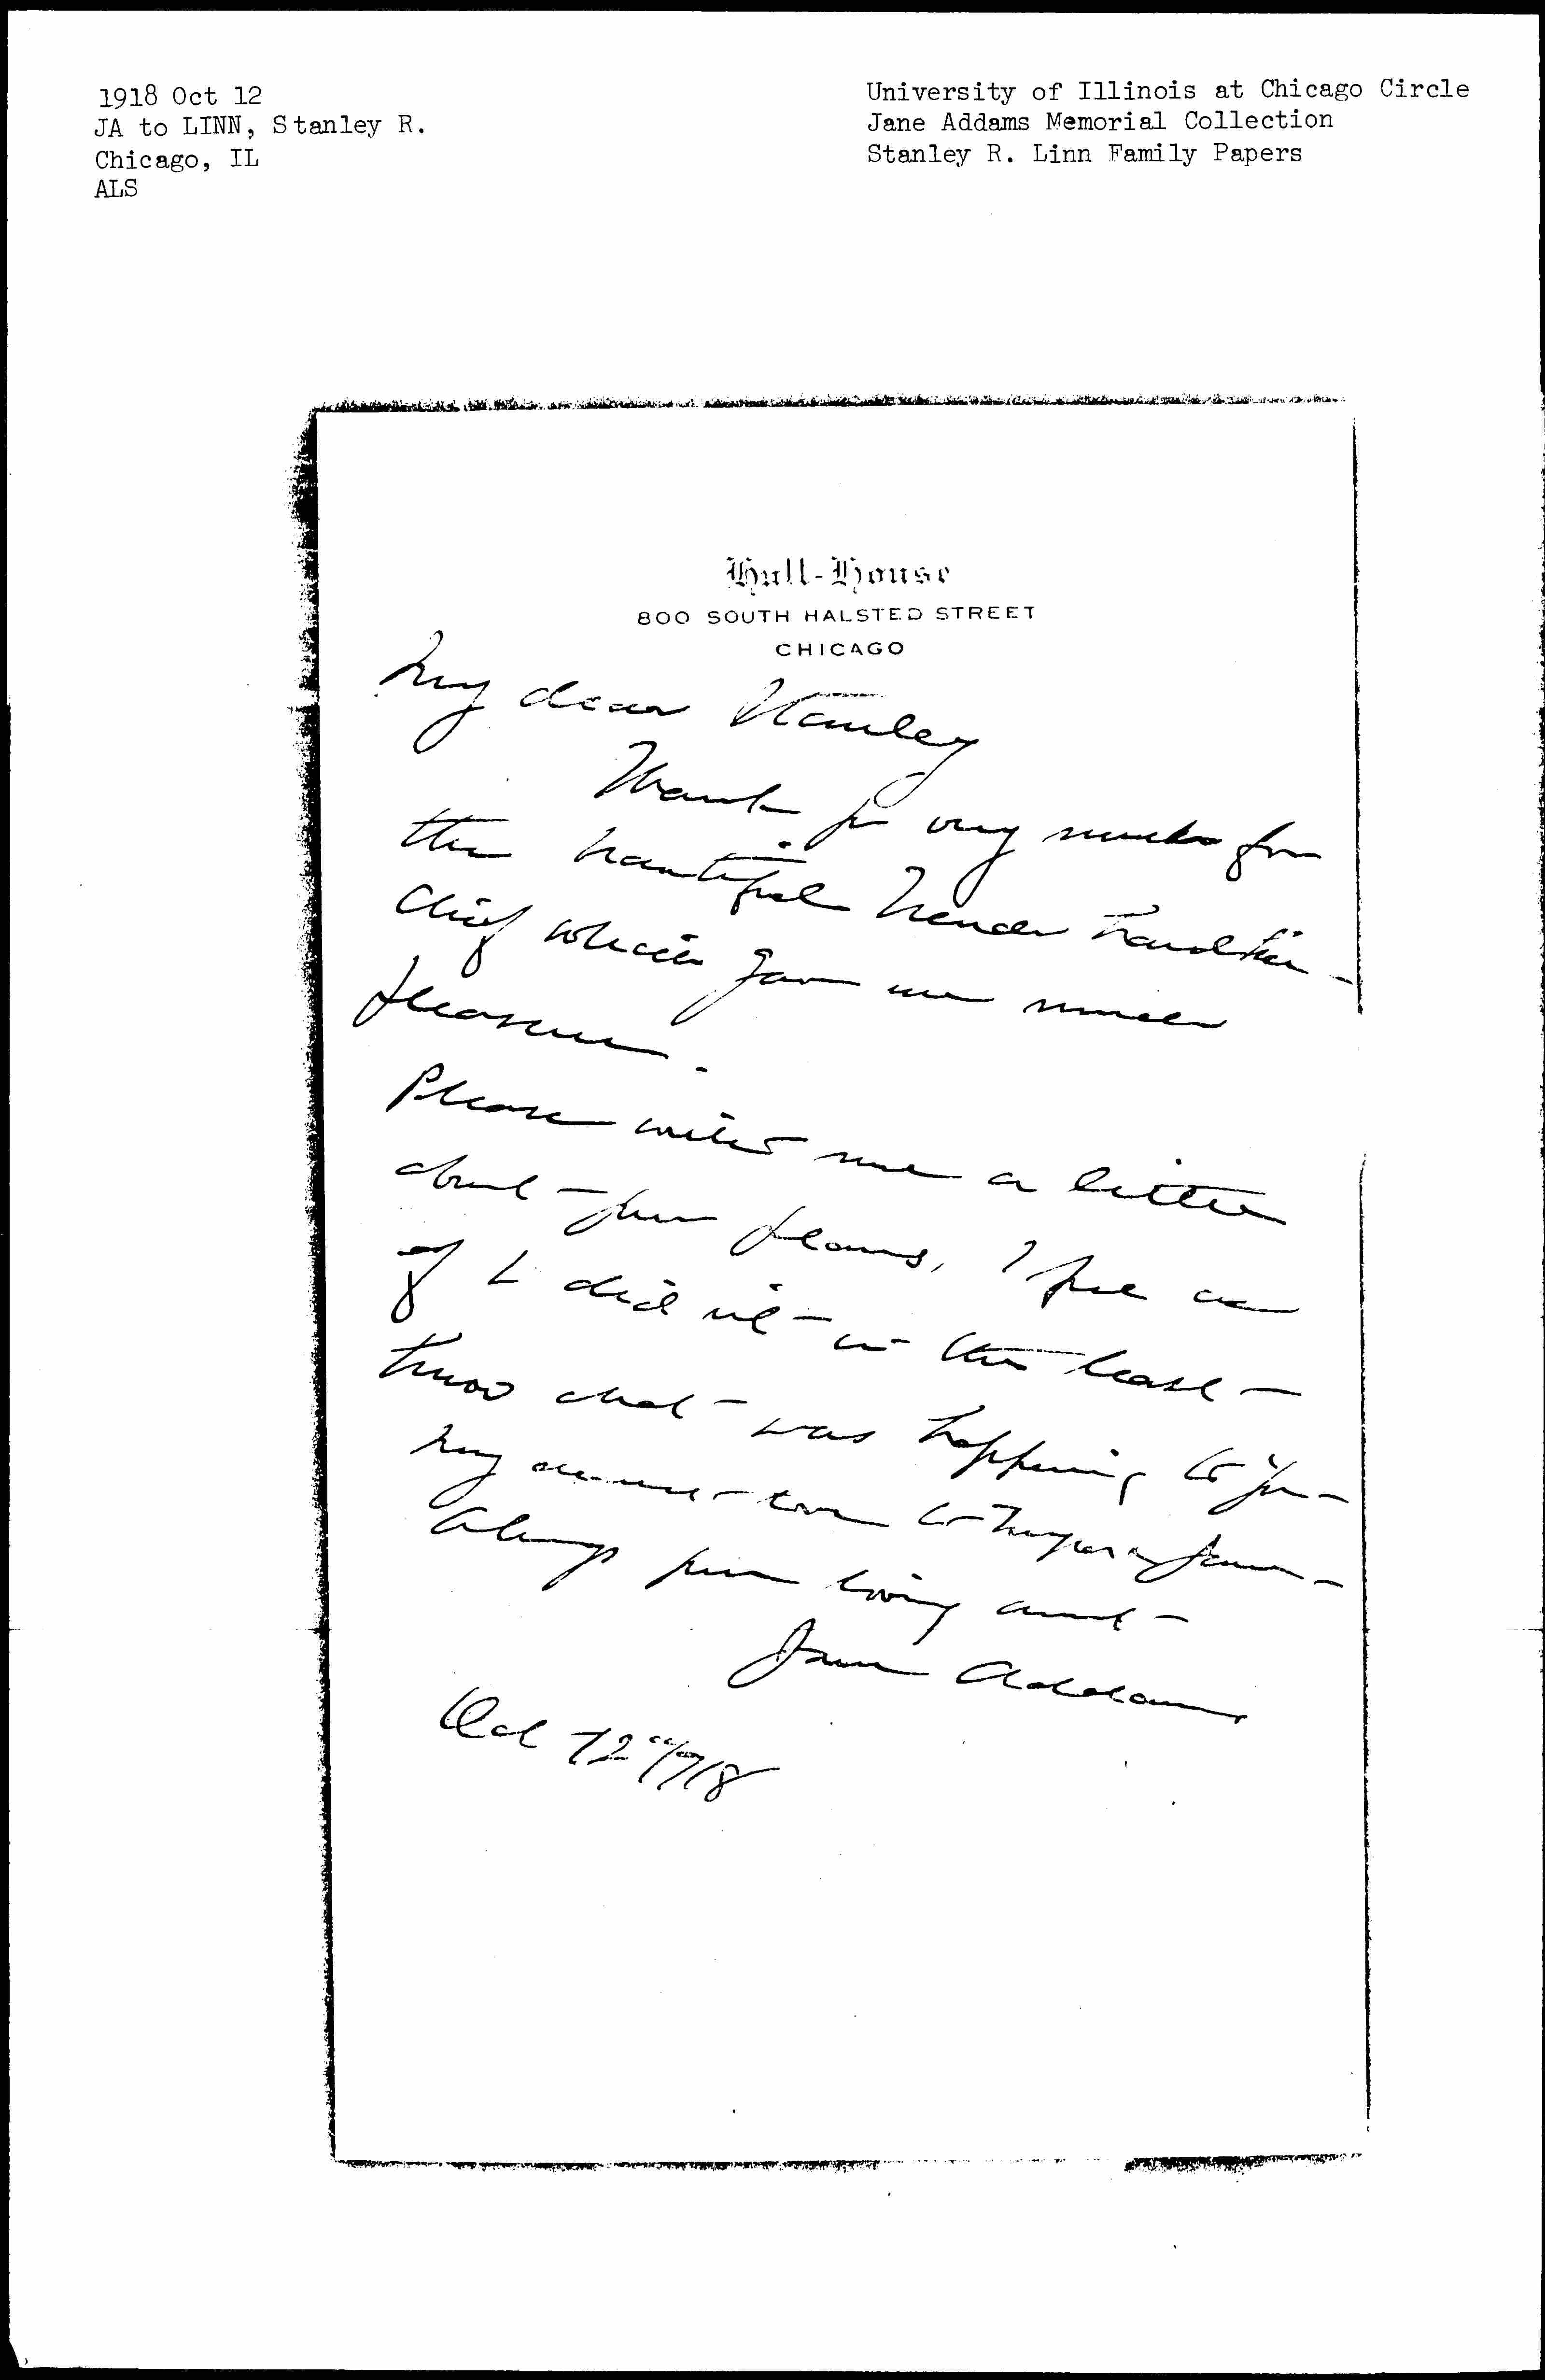 1918 Oct 12
JA to LINN, Stanley R.
Chicago, IL
ALS
University of Illinois at Chicago Circle
Jane Addams Memorial Collection
Stanley R. Linn Family Papers
Hull-House
800 SOUTH HALSTED STREET
CHICAGO
My dear Stanley
Thank you very much for
the beautiful French handker-
chief which gave me much
pleasure.
Please write me a letter
about your plans, I feel as
if I did not in the least
know what was happening to you
My dearest love to Myra &
Always your loving aunt
Jane Addams
Oct 12" 1918